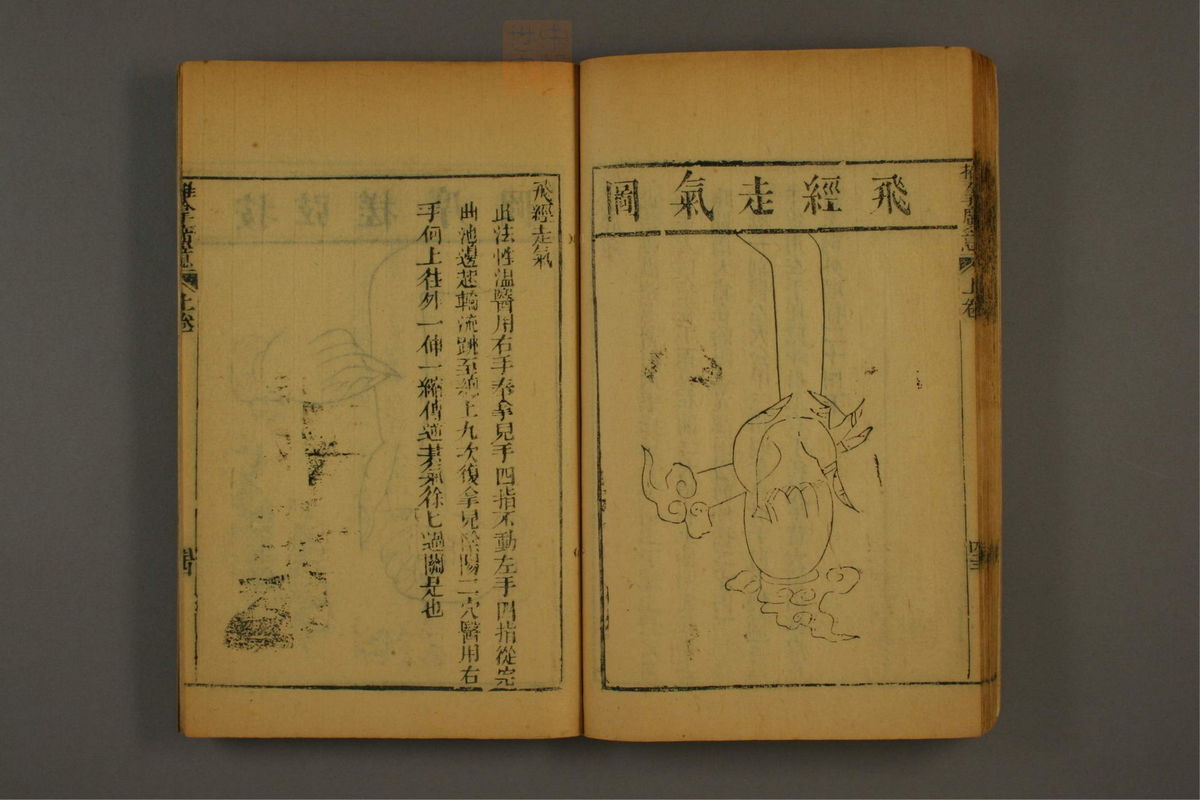 飛經走氣圖
上卷
四三
飛經走氣
此法性温醫用右手奉拿兒手四指不動左手四指從
曲池邊起輪流跳至總上九次復拿兒陰陽二穴醫用右
手向上往外一伸一縮傳逓其氣徐七過關是也
推拿廣意
上卷